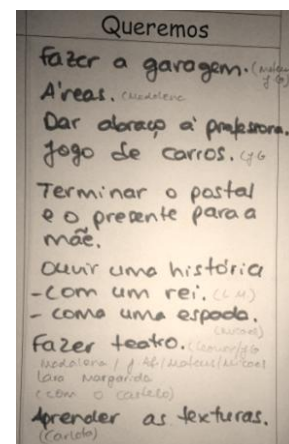 Queremos
Fazer a garagem. (Mateus
J G)
Áreas. (Madalena
Dar abraço à professora.
Jogo de carros. (J G
Terminar o postal
e o presente para a
mãe.
Ouvir uma história
- com um rei. (L M.)
- com uma espada.
(Micael)
Fazer teatro. (Leonor/JG
Madalena / J Af/Mateus/Micael
Lara Margarida
(com o castelo)
Aprender as texturas.
(Carlota)